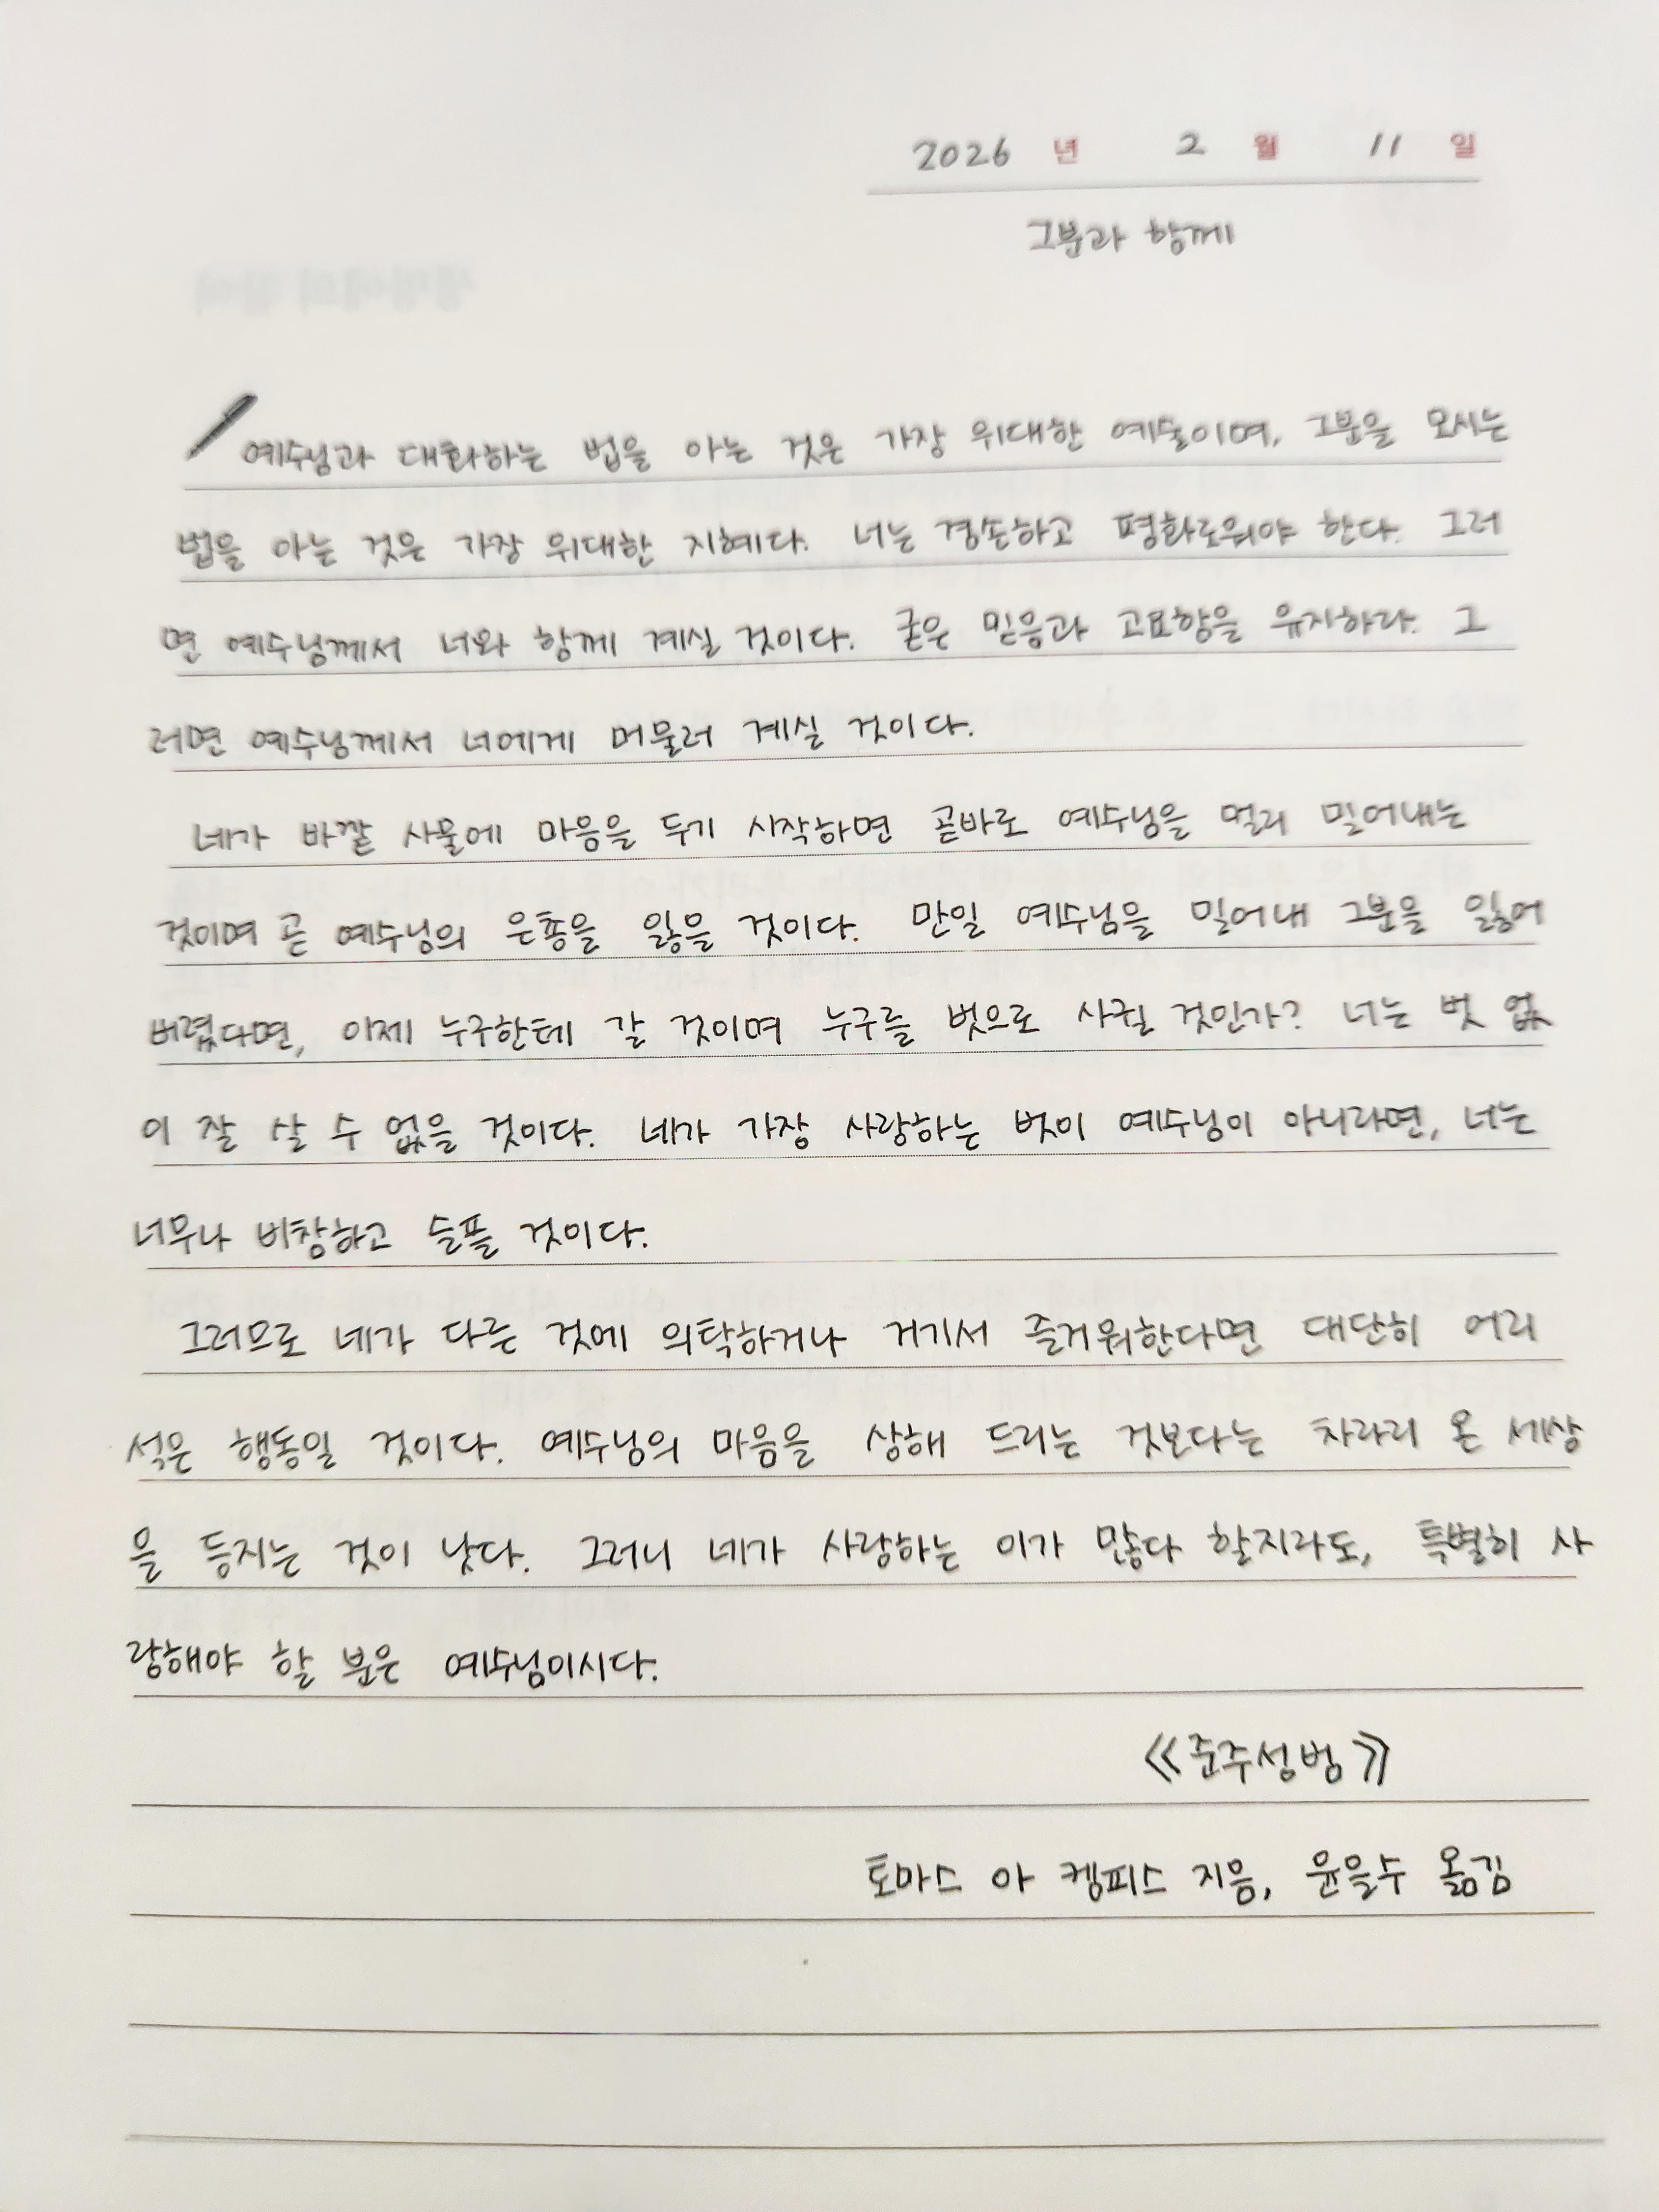 2026 년 2 월 11 일
그분과 함께
예수님과 대화하는 법을 아는 것은 가장 위대한 예술이며, 그분을 모시는
법을 아는 것은 가장 위대한 지혜다. 너는 겸손하고 평화로워야 한다. 그러
면 예수님께서 너와 함께 계실 것이다. 굳은 믿음과 고요함을 유지하라. 그
러면 예수님께서 너에게 머물러 계실 것이다.
네가 바깥 사물에 마음을 두기 시작하면 곧바로 예수님을 멀리 밀어내는
것이며 곧 예수님의 은총을 잃을 것이다. 만일 예수님을 밀어내 그분을 잃어
버렸다면, 이제 누구한테 갈 것이며 누구를 벗으로 사귈 것인가? 너는 벗 없
이 잘 살 수 없을 것이다. 네가 가장 사랑하는 벗이 예수님이 아니라면, 너는
너무나 비참하고 슬플 것이다.
그러므로 네가 다른 것에 의탁하거나 거기서 즐거워한다면 대단히 어리
석은 행동일 것이다. 예수님의 마음을 상해 드리는 것보다는 차라리 온 세상
을 등지는 것이 낫다. 그러니 네가 사랑하는 이가 많다 할지라도, 특별히 사
랑해야 할 분은 예수님이시다.
《준주성범》
토마스 아 켐피스 지음, 윤을수 옮김